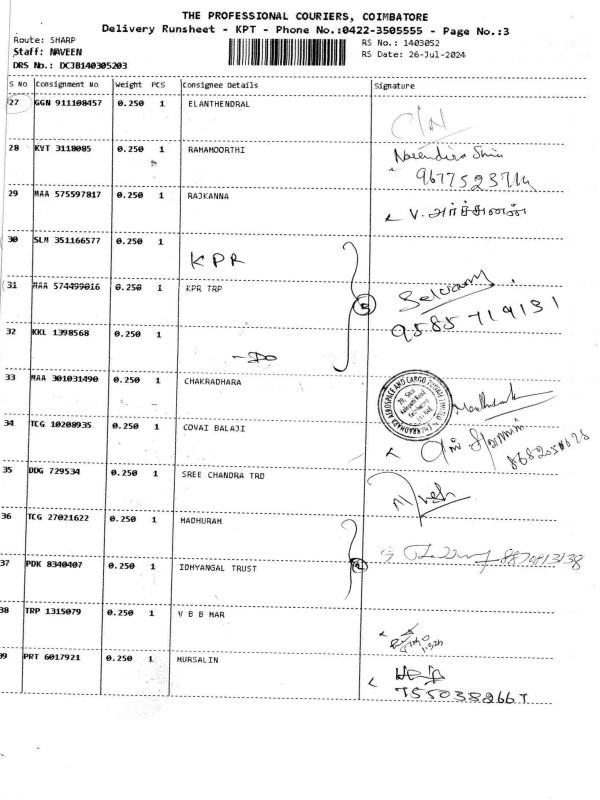 THE PROFESSIONAL COURIERS, COIMBATORE
Delivery Runsheet - KPT - Phone No.:0422-3505555 - Page No.:3
Route: SHARP
RS No.: 1403052
Staff: NAVEEN
RS Date: 26-Jul-2024
DRS No.: DCJB140305203
S No Consignment No Weight PCS Consignee Details Signature
27 GGN 911108457 0.250 1 ELANTHENDRAL
28 KVT 3118085 0.250 1 RAMAMOORTHI
9677523714
29 MAA 575597817 0.250 1 RAJKANNA
V. அர்ச்சுனன்
30 SLM 351166577 0.250 1
KPR
31 MAA 574499016 0.250 1 KPR TRP
9585719131
32 KKL 1398568 0.250 1
-DO
33 MAA 301031490 0.250 1 CHAKRADHARA
34 TCG 10208935 0.250 1 COVAI BALAJI
35 DDG 729534 0.250 1 SREE CHANDRA TRD
36 TCG 27021622 0.250 1 MADHURAM
37 PDK 8340407 0.250 1 IDHYANGAL TRUST
38 TRP 1315079 0.250 1 V B B MAR
39 PRT 6017921 0.250 1 MURSALIN